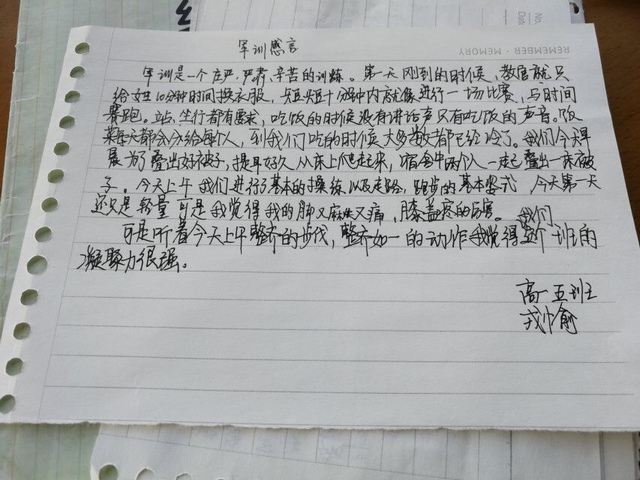 REMEMBER · MEMORY
军训感言
军训是一个庄严、严肃、辛苦的训练。第一天刚到的时候,教官就只
给如10分钟时间换衣服,短短十分钟内就像进行一场比赛,与时间
赛跑。站、坐行都有要求,吃饭的时候没有讲话声只有吃饭的声音。饭
菜每天都会分给每个人,到我们吃的时候大多数都已经冷了。我们今天早
晨为了叠出好被子,提早好久从床上爬起来,宿舍中两个人一起叠出一床被
子。今天上午我们进行了基本的操练以及走路,跑步的基本姿式 今天第一天
还只是轻量 可是我觉得我的脚又麻又痛,膝盖疼的厉害。
可是听着今天上午整齐的步伐,整齐如一的动作我觉得我们班的
凝聚力很强。
高一五班